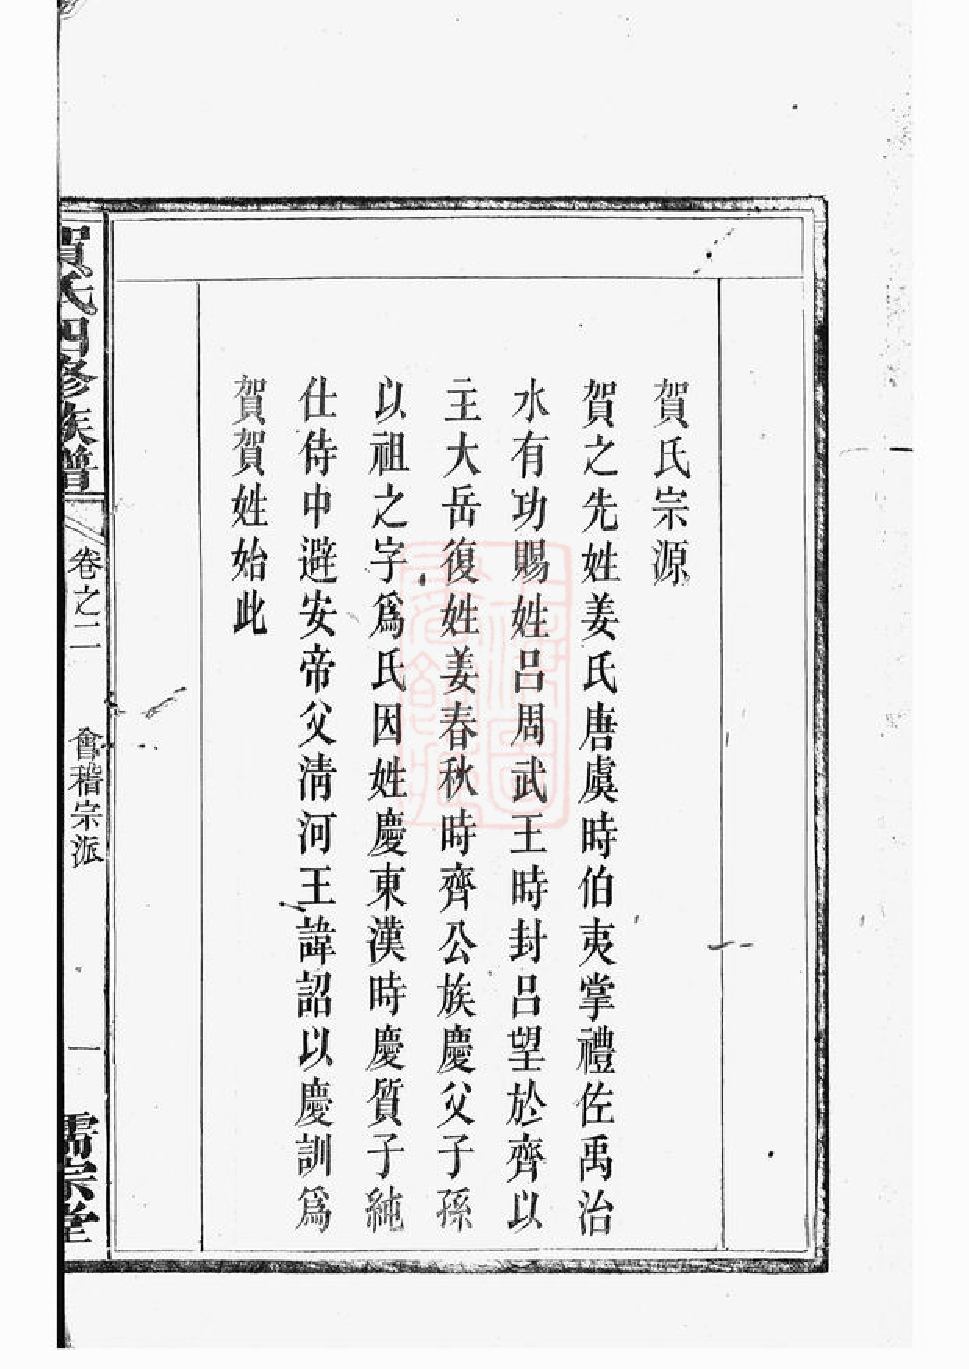 賀氏宗源
賀之先姓姜氏唐虞時伯夷掌禮佐禹治
水有功賜姓呂周武王時封呂望於齊以
主大岳復姓姜春秋時齊公族慶父子孫
以祖之字爲氏因姓慶東漢時慶質子純
仕侍中避安帝父清河王諱詔以慶訓爲
賀賀姓始此
賀氏四修族譜
卷之二
會稽宗派
一
儒宗堂